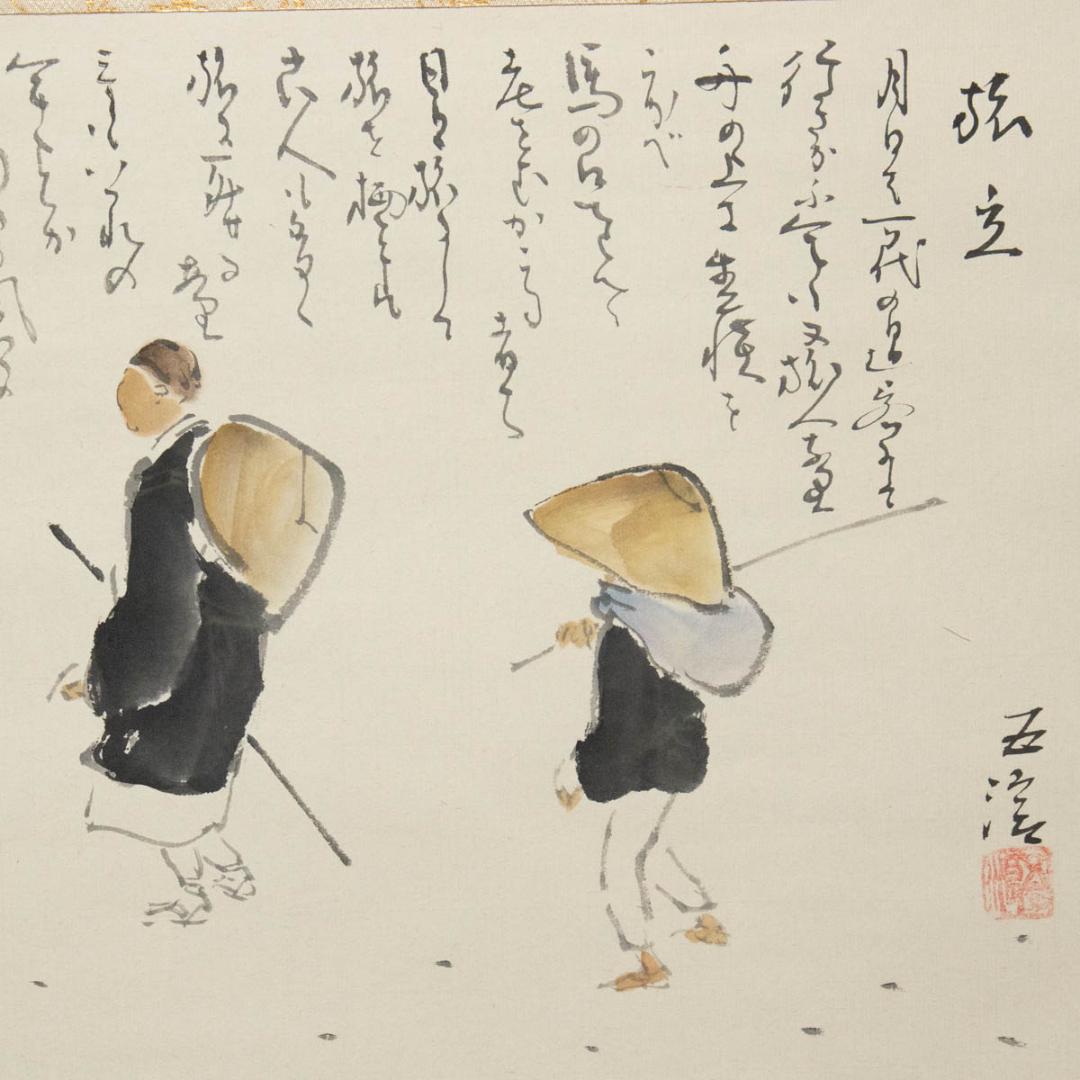 旅立
月日は百代の過客にして
行かふ年も又旅人也
舟の上に生涯を
うかべ
馬の口とらへて
老をむかふる者は
日々旅にして
旅を栖とす
古人も多く
旅に死せるあり
予もいづれの
年よりか